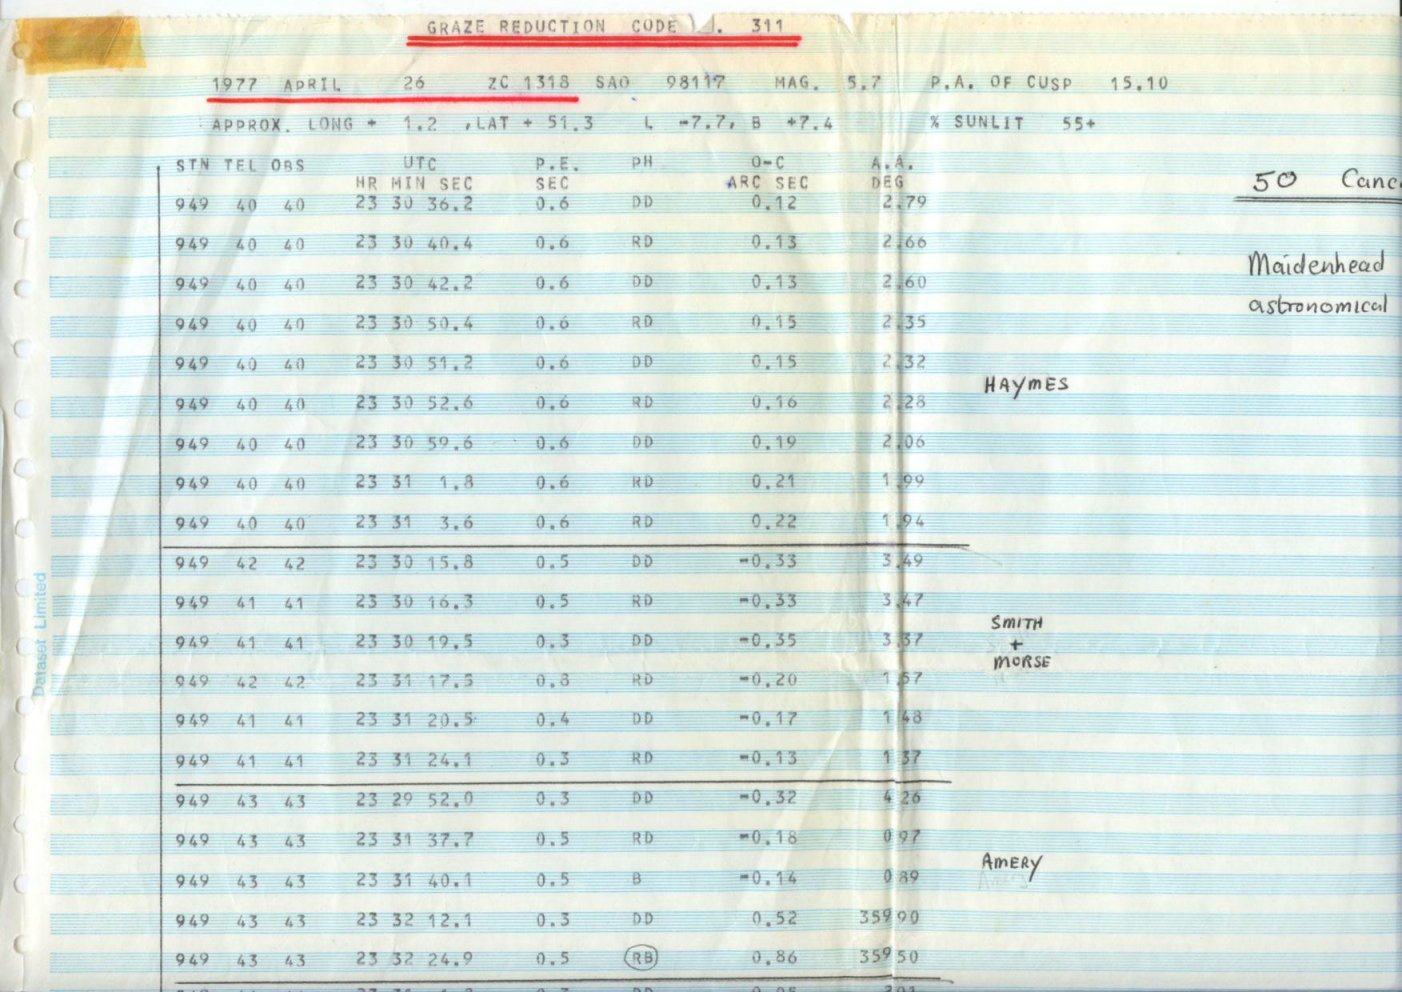 GRAZE REDUCTION CODE . 311
1977 APRIL 26 ZC 1318 SAO 98117 MAG. 5.7 P.A. OF CUSP 15.10
APPROX. LONG + 1.2 ,LAT + 51.3 L -7.7, B +7.4 % SUNLIT 55+
STN TEL OBS UTC P.E. PH O-C A.A.
HR MIN SEC SEC ARC SEC DEG
50 Canc
949 40 40 23 30 36.2 0.6 DD 0.12 2.79
949 40 40 23 30 40.4 0.6 RD 0.13 2.66
Maidenhead
949 40 40 23 30 42.2 0.6 DD 0.13 2.60
astronomical
949 40 40 23 30 50.4 0.6 RD 0.15 2.35
949 40 40 23 30 51.2 0.6 DD 0.15 2.32
HAYMES
949 40 40 23 30 52.6 0.6 RD 0.16 2.28
949 40 40 23 30 59.6 0.6 DD 0.19 2.06
949 40 40 23 31 1.8 0.6 RD 0.21 1.99
949 40 40 23 31 3.6 0.6 RD 0.22 1.94
949 42 42 23 30 15.8 0.5 DD -0.33 3.49
949 41 41 23 30 16.3 0.5 RD -0.33 3.47
SMITH
+
949 41 41 23 30 19.5 0.3 DD -0.35 3.37
MORSE
949 42 42 23 31 17.5 0.8 RD -0.20 1.57
949 41 41 23 31 20.5 0.4 DD -0.17 1.48
949 41 41 23 31 24.1 0.3 RD -0.13 1.37
949 43 43 23 29 52.0 0.3 DD -0.32 4.26
949 43 43 23 31 37.7 0.5 RD -0.18 0.97
AMERY
949 43 43 23 31 40.1 0.5 B -0.14 0.89
949 43 43 23 32 12.1 0.3 DD 0.52 359.90
949 43 43 23 32 24.9 0.5 RB 0.86 359.50
Dataset Limited